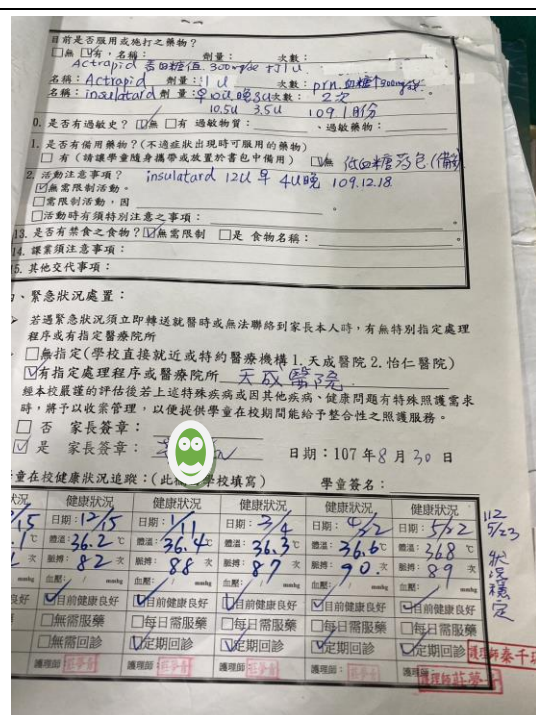 目前是否服用或施打之藥物？
□無 ☑有，名稱： 劑量： 次數：
Actrapid 看血糖值 300mg/dl 打1u
名稱：Actrapid 劑量：1u 次數：prn. 血糖↑300mg/dl
名稱：insulatard 劑量：早10u晚3u 次數：2次
10.5u 3.5u 109 1月份
0. 是否有過敏史？☑無 □有 過敏物質： 、過敏藥物：
1. 是否有備用藥物？(不適症狀出現時可服用的藥物)
□ 有（請讓學童隨身攜帶或放置於書包中備用） ☑無 低血糖葯包(備)
2. 活動注意事項？ insulatard 12u早 4u晚 109.12.18
☑無需限制活動。
□需限制活動，因 。
□活動時有須特別注意之事項： 。
13. 是否有禁食之食物？☑無需限制 □是 食物名稱： 。
14. 課業須注意事項：
5. 其他交代事項：
、緊急狀況處置：
若遇緊急狀況須立即轉送就醫時或無法聯絡到家長本人時，有無特別指定處理
程序或有指定醫療院所
□無指定(學校直接就近或特約醫療機構 1.天成醫院 2.怡仁醫院)
☑有指定處理程序或醫療院所 天成醫院
經本校嚴謹的評估後若上述特殊疾病或因其他疾病、健康問題有特殊照護需求
時，將予以收案管理，以便提供學童在校期間能給予整合性之照護服務。
□ 否 家長簽章：
☑ 是 家長簽章： 日期：107 年 8 月 30 日
童在校健康狀況追蹤：(此 校填寫) 學童簽名：
狀況 健康狀況 健康狀況 健康狀況 健康狀況 健康狀況
日期：12/15 日期：1/11 日期：3/4 日期：4/22 日期：5/22
℃ 體溫：36.2 ℃ 體溫：36.4 ℃ 體溫：36.3 ℃ 體溫：36.6 ℃ 體溫：36.8 ℃
次 脈搏：82 次 脈搏：88 次 脈搏：87 次 脈搏：90 次 脈搏：89 次
mmhg 血壓： / mmhg 血壓： / mmhg 血壓： / mmhg 血壓： / mmhg 血壓： / mmhg
良好 ☑目前健康良好 ☑目前健康良好 ☑目前健康良好 ☑目前健康良好 ☑目前健康良好
□無需服藥 □每日需服藥 □每日需服藥 □每日需服藥 □每日需服藥
□無需回診 ☑定期回診 ☑定期回診 ☑定期回診 ☑定期回診
護理師 護理師： 護理師 護理師： 護理師
112
5/23
狀況穩定
護理師秦千